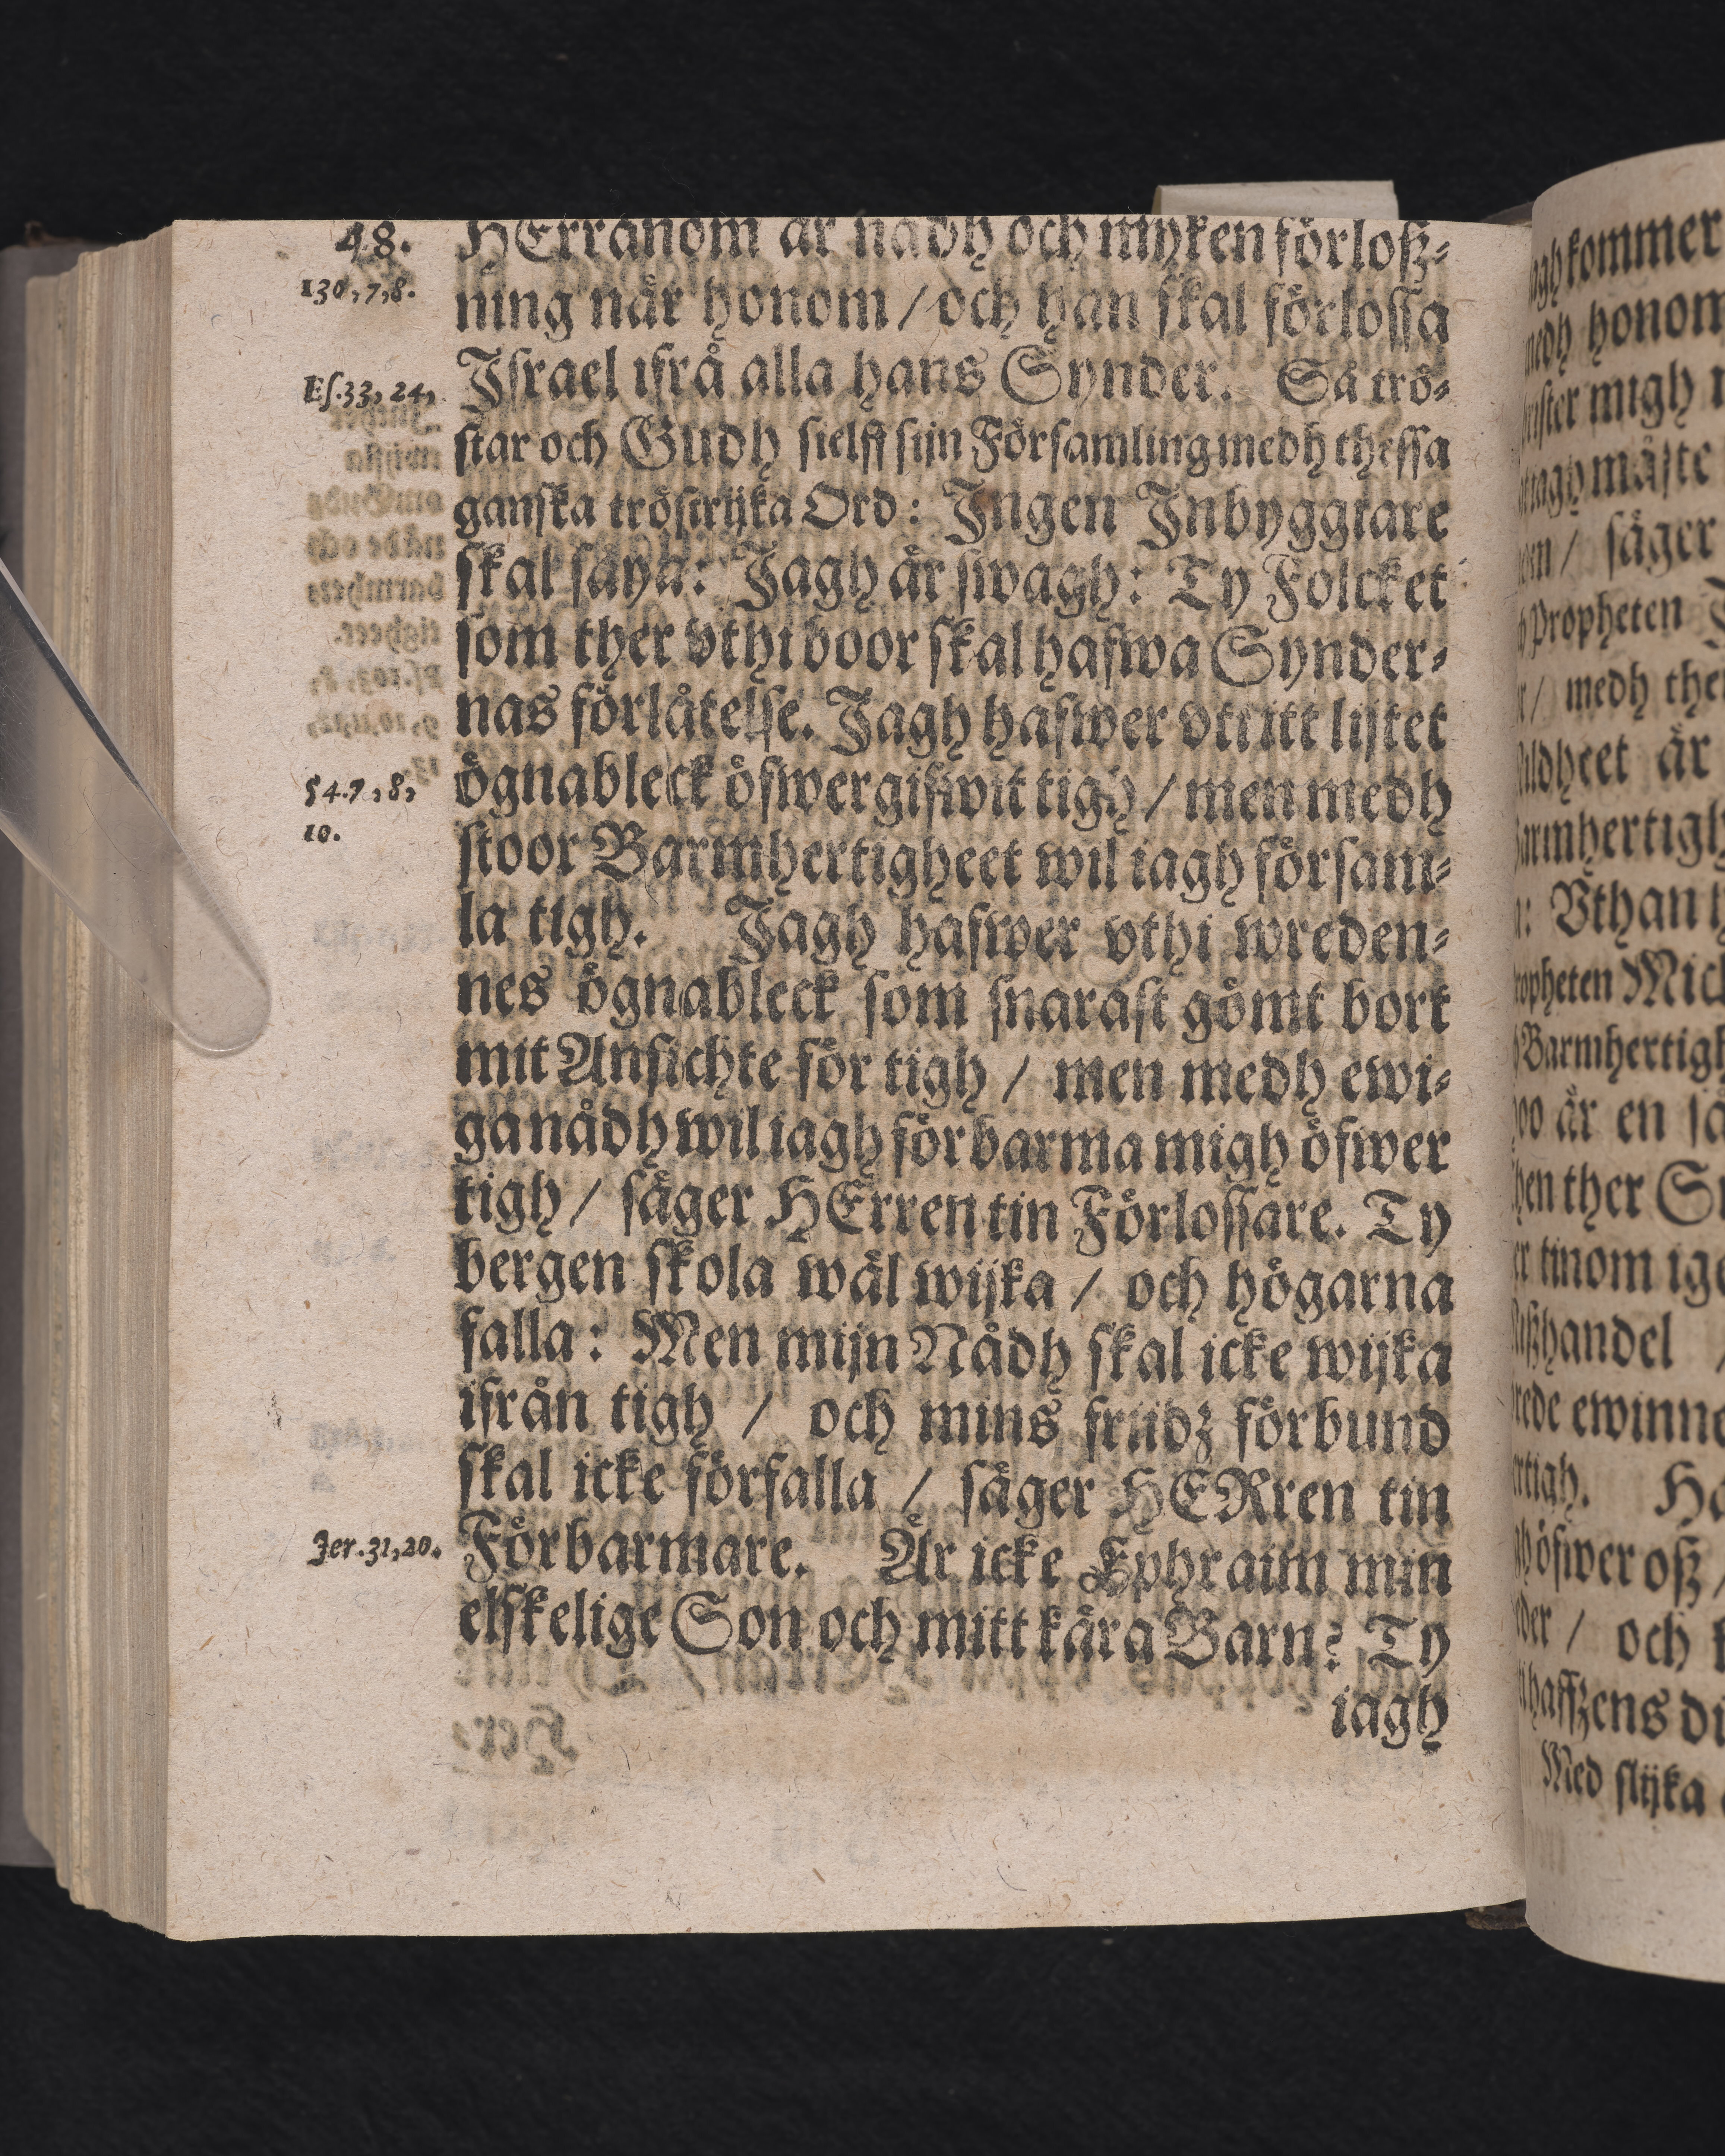 48.
HErranom är nådh och myken förloß-
130, 7, 8.
ning när honom / och han skal förlossa
Es. 33, 24,
Israel ifrå alla hans Synder. Så trö-
star och Gudh sielff sijn Församling medh thessa
ganska tröstrijka Ord: Ingen Inbyggiare
skal säya: Jagh är swagh: Ty Folcket
som ther vthi boor skal hafwa Synder-
nas förlåtelse. Jagh hafwer vti itt lijtet
54. 7, 8,
ögnableck öfwergifwit tigh / men medh
10.
stoor Barmhertigheet wil iagh försam-
la tigh. Jagh hafwer vthi wreden-
nes ögnableck som snarast gömt bort
mit Ansichte för tigh / men medh ewi-
ga nådh wil iagh förbarma migh öfwer
tigh / säger HErren tin Förlossare. Ty
bergen skola wäl wijka / och högarna
falla: Men mijn Nådh skal icke wijka
ifrån tigh / och mins friidz förbund
skal icke förfalla / säger HERren tin
Jer. 31, 20.
Förbarmare. Är icke Ephraim min
elskelige Son och mitt kära Barn? Ty
iagh
kommer
honom
migh
måste
/ säger
Propheten
/ medh
är
Vthan
Mich
är en
ther
tinom
/
ewinne
öfwer oß /
/ och
Med slijka